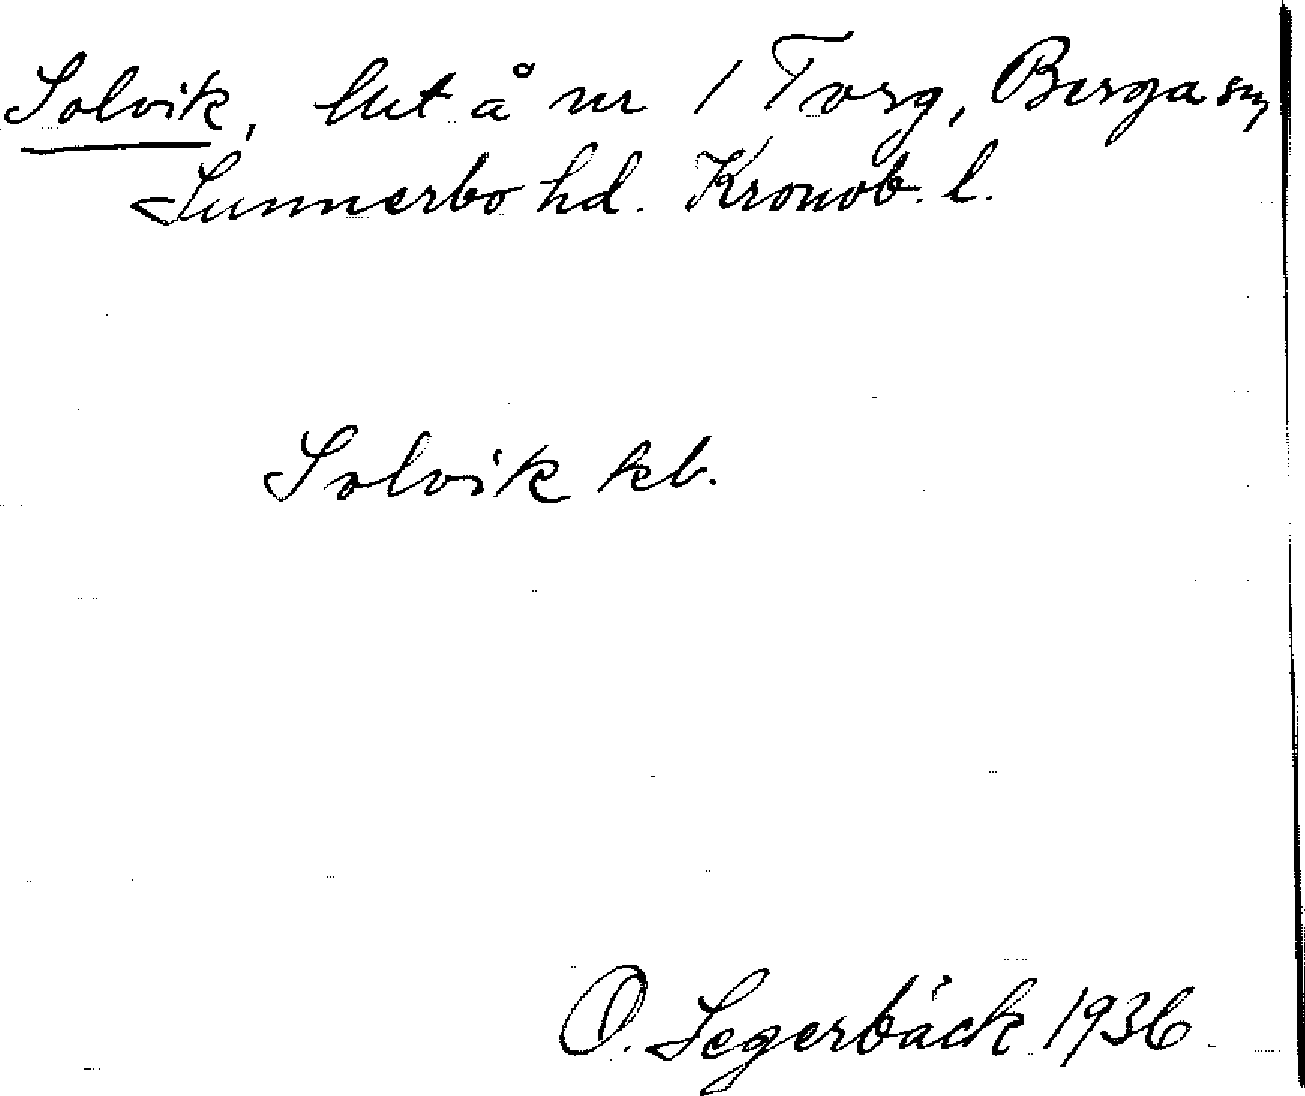 Solvik, lht å nr 1 Torg, Berga sn,
Sunnerbo hd. Kronob. l.
Solvik kb.
O. Segerbäck 1936